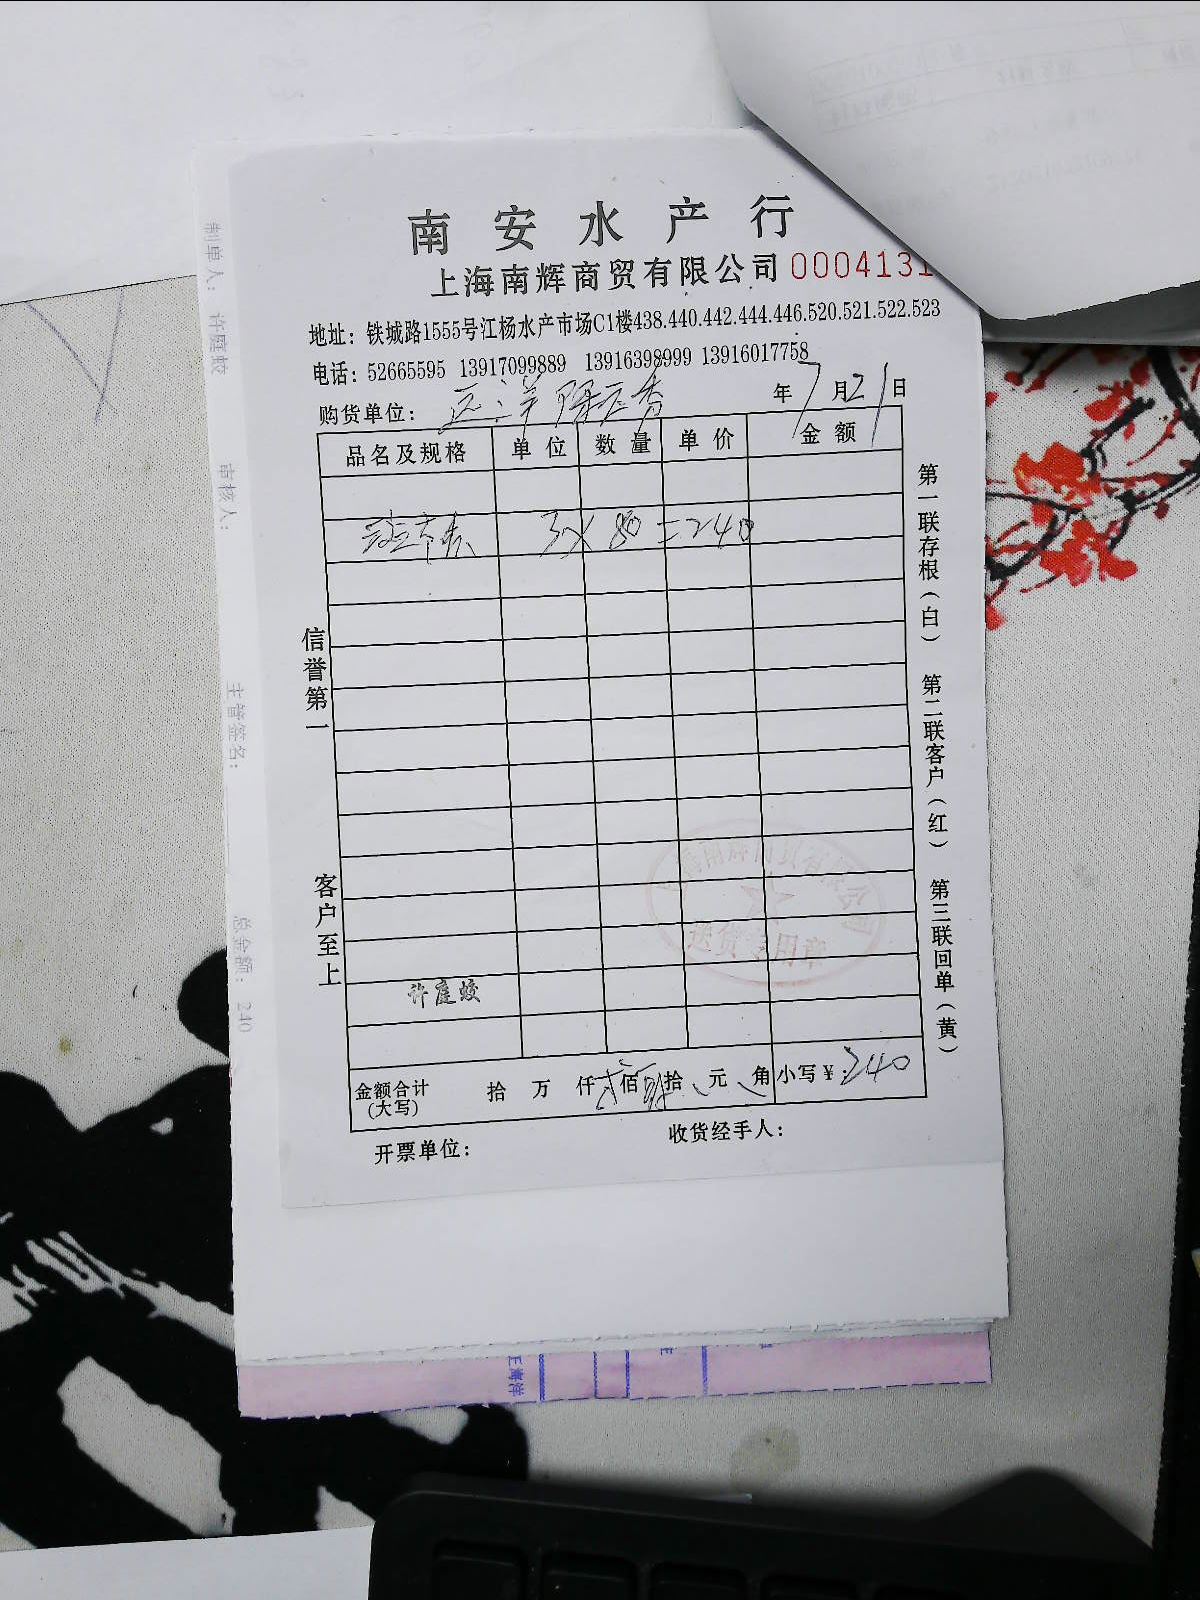 南安水产行
上海南辉商贸有限公司 0004131
地址：铁城路1555号江杨水产市场C1楼438.440.442.444.446.520.521.522.523
电话：52665595 13917099889 13916398999 13916017758
购货单位：远洋 年7月21日
品名及规格 单位 数量 单价 金额
3X 80 =240
许庭蛟
金额合计（大写） 拾 万 仟贰佰肆拾 元 角 小写￥：240
开票单位： 收货经手人：
信誉第一
客户至上
第一联存根（白） 第二联客户（红） 第三联回单（黄）
上海南辉商贸有限公司
送货专用章
制单人：许庭蛟
审核人：
主管签名：
总金额：240
王海洋